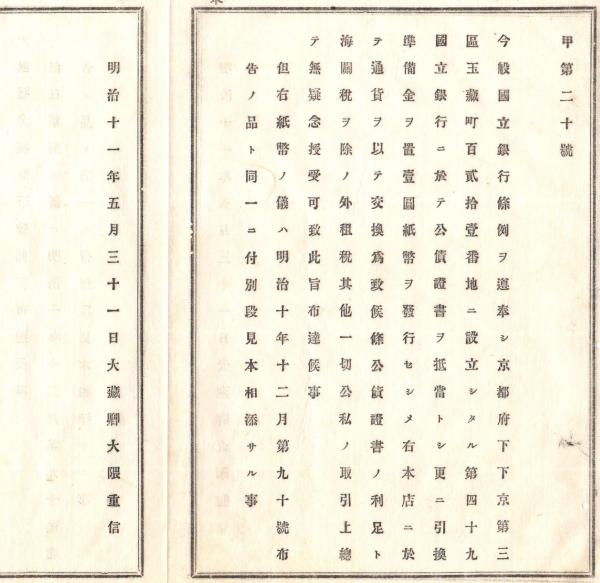 甲第二十號
今般國立銀行條例ヲ遵奉シ京都府下下京第三
區玉藏町百貳拾壹番地ニ設立シタル第四十九
國立銀行ニ於テ公債證書ヲ抵當トシ更ニ引換
準備金ヲ置壹圓紙幣ヲ發行セシメ右本店ニ於
テ通貨ヲ以テ交換爲致候條公債證書ノ利足ト
海關稅ヲ除ノ外租稅其他一切公私ノ取引上總
テ無疑念授受可致此旨布達候事
但右紙幣ノ儀ハ明治十年十二月第九十號布
告ノ品ト同一ニ付別段見本相添サル事
明治十一年五月三十一日大藏卿大隈重信